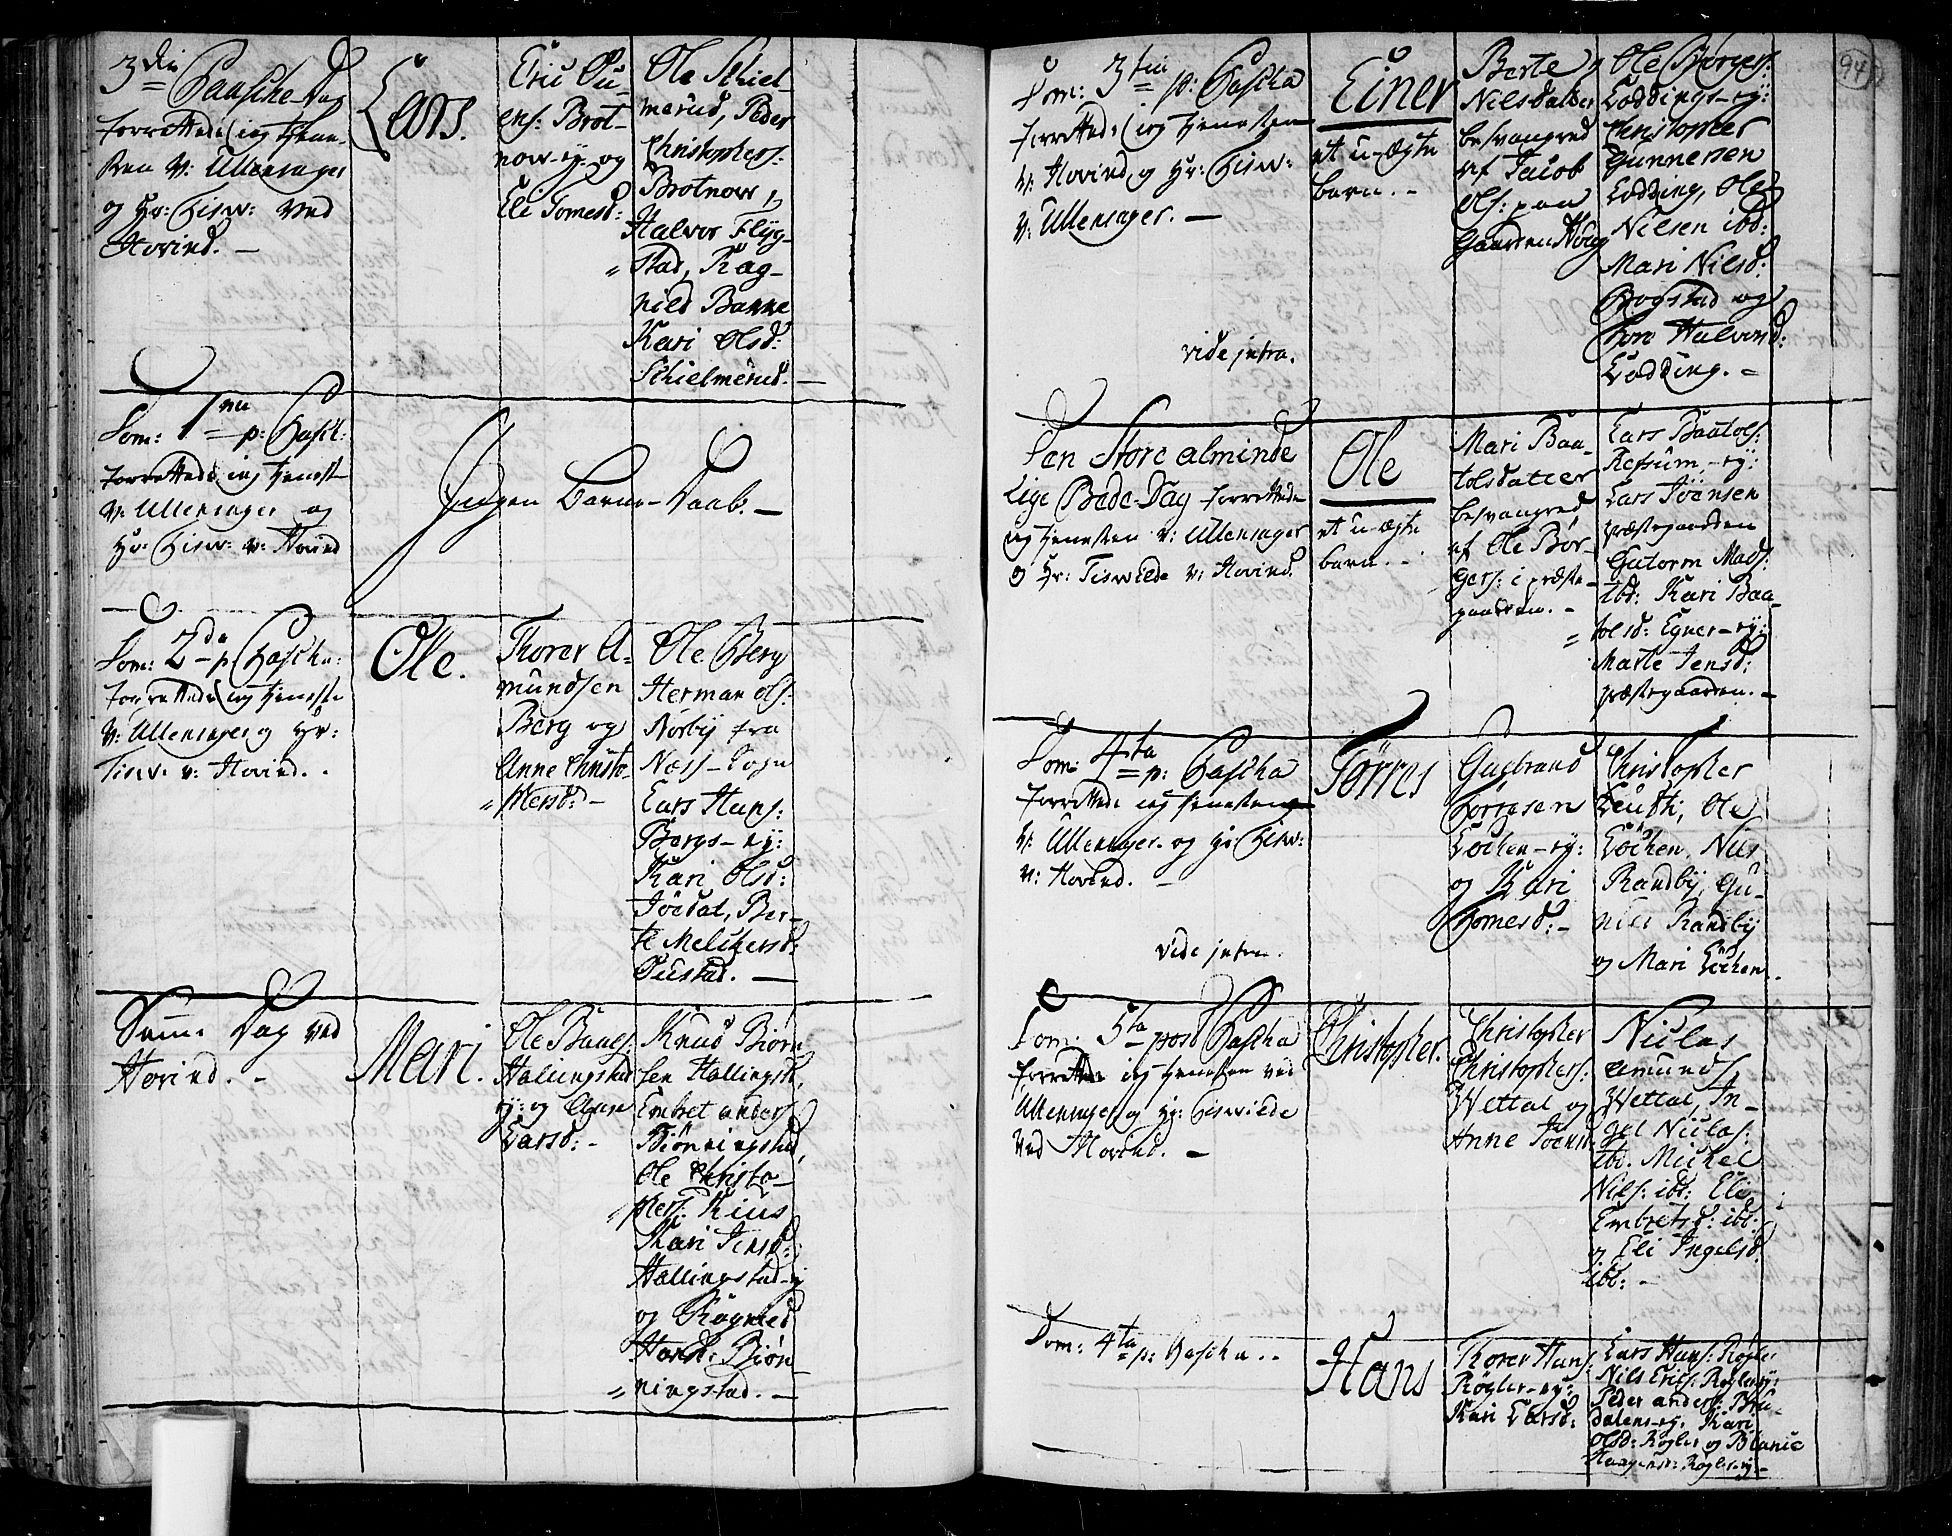 3die Paasche-Dag
forrettede ieg Tienes-
ten v: Ullensager
og Hr: Tisw: ved
Hovind. –
Lars.
Eric Ou-
ens: Brot-
now-ey: og
Eli Tomesd:
Ole Schiel-
merud, Peder
Christophers:
Brotnow,
Halvor Flÿg-
stad, Rag-
nild Banne
Kari Olsd:
Schielmerud. –
Dom: 1ma p: Pasch:
forrettede ieg Tienest
v: Ullensager og
Hr: Tisw: v: Hovind
Ingen Barne-Daab. –
Dom: 2da p: Pascha:
forrettede ieg Tieneste
v: Ullensager og Hr:
Tisw: v: Hovind. .
Ole.
Thorer A-
mundsen
Berg og
Anne Christo-
phersd: –
Ole Berg
Herman Ols:
Norbÿ fra
Næss-Sogn
Lars Hans:
Bergs-ey:
Kari Olsd:
Jödal, Ber-
te Melchersd:
Oustad. –
Samme Dag ved
Hovind. –
Mari.
Ole
Hallingstad
ey: og Anne
Larsd: –
Knud Biørn
sen Hallingst:
Embret Anders:
Biönningstad,
Ole Christo-
phers: Kius
Kari Jensd:
Hallingstad-ey
og Rögnild
Hansd: Biön-
ningstad. –
94
Dom: 3tia p: Pascha
forrettede ieg Tienesten
v: Hovind og Hr: Tisw:
v: Ullensager. –
vide infra.
Einer
et u-ægte
barn. –
Berte
Nilsdatter
besvangred
af Jacob
Ols: paa
Gaarden Houg
Ole Börgers:
Loddings-ey:
Christopher
Gunnersen
Lodding, Ole
Nilsen ibd:
Mari Nilsd:
Bogstad og
Goro Halvorsd:
Lodding. –
Den Store alminde
lige Bede-Dag forrettede
ieg Tienesten v: Ullensager
og Hr: Tiswilde v: Hovind.
Ole
et u-ægte
barn. –
Mari Baa-
tolsdatter
besvangred
af Ole Bör-
gers: i præste-
gaarden. –
Lars Baatols:
Refsum,-ey:
Lars Jöensen
præstegaarden
Gutorm Mads:
ibd: Kari Baa-
tolsd: Egner-ey:
Marte Jensd:
præstegaarden. –
Dom: 4ta p: Pascha
forrettede ieg Tienesten
v: Ullensager. og Hr: Tisw:
v: Hovind. –
vide infra.
Törres
Gudbrand
Törresen
Löchen-ey:
og Kari
Tomesd: –
Christopher
Leuth, Ole
Löchen, Nils
Randbÿ, Gu-
nild Randbÿ
og Mari Löchen.
Dom: 5ta post Pascha
forrettede ieg Tienesten ved
Ullensager og Hr: Tiswilde
ved Hovind. –
Christopher.
Christopher
Christophers:
Wettal og
Anne Joensd:
Niclas
Amunds:
Wettal, In-
gel Niclas:
ibd: Michel
Nils: ibd: Eli
Embretsd: ibd:
og Eli Ingelsd
ibd: –
Dom: 4ta p: Pascha. .
Hans
Thorer Hans:
Rögler-ey:
Kari Larsd:
Lars Hans: Rögler
Nils Erics: Rögler-ey:
Peder Anders: Bru-
dalens-ey: Kari
Olsd: Rögler og
Rögler-ey: –